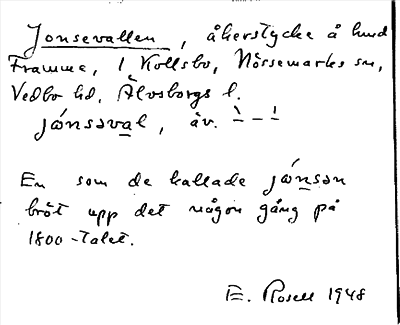 Jonsevallen, åkerstycke å hmd
Framme, 1 Kollsbo, Nössemarks sn,
Vedbo hd, Älvsborgs l.
jǻnsəvaḷ, äv. ˋ – ˊ
En som de kallade jǻnsən
bröt upp det någon gång på
1800-talet.
E. Rosell 1948